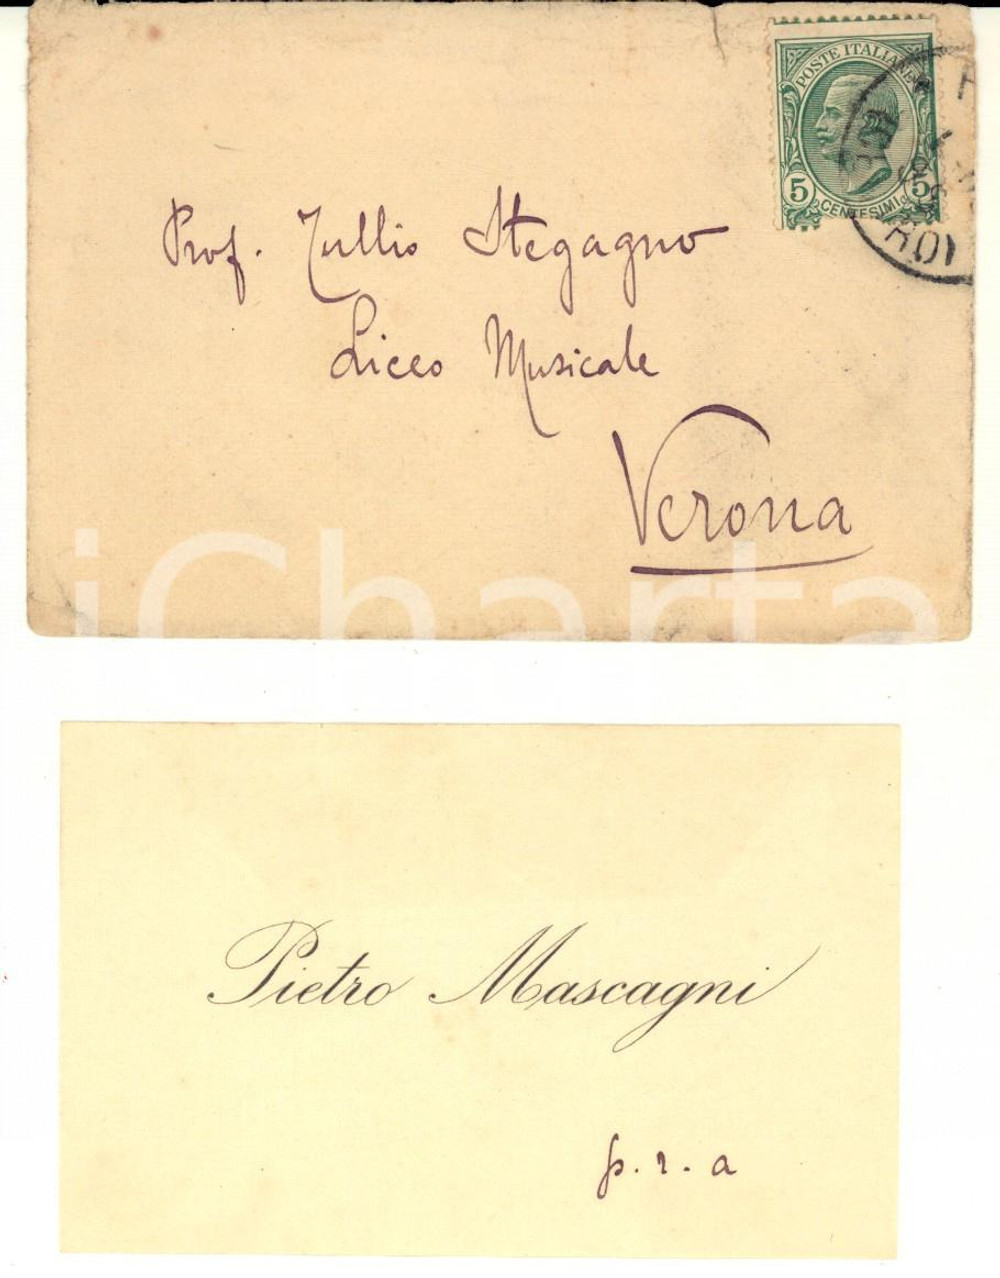 POSTE ITALIANE
5 CENTESIMI 5
Prof. Tullio Stegagno
Liceo Musicale
Verona
iCharta
Pietro Mascagni
p. r. a